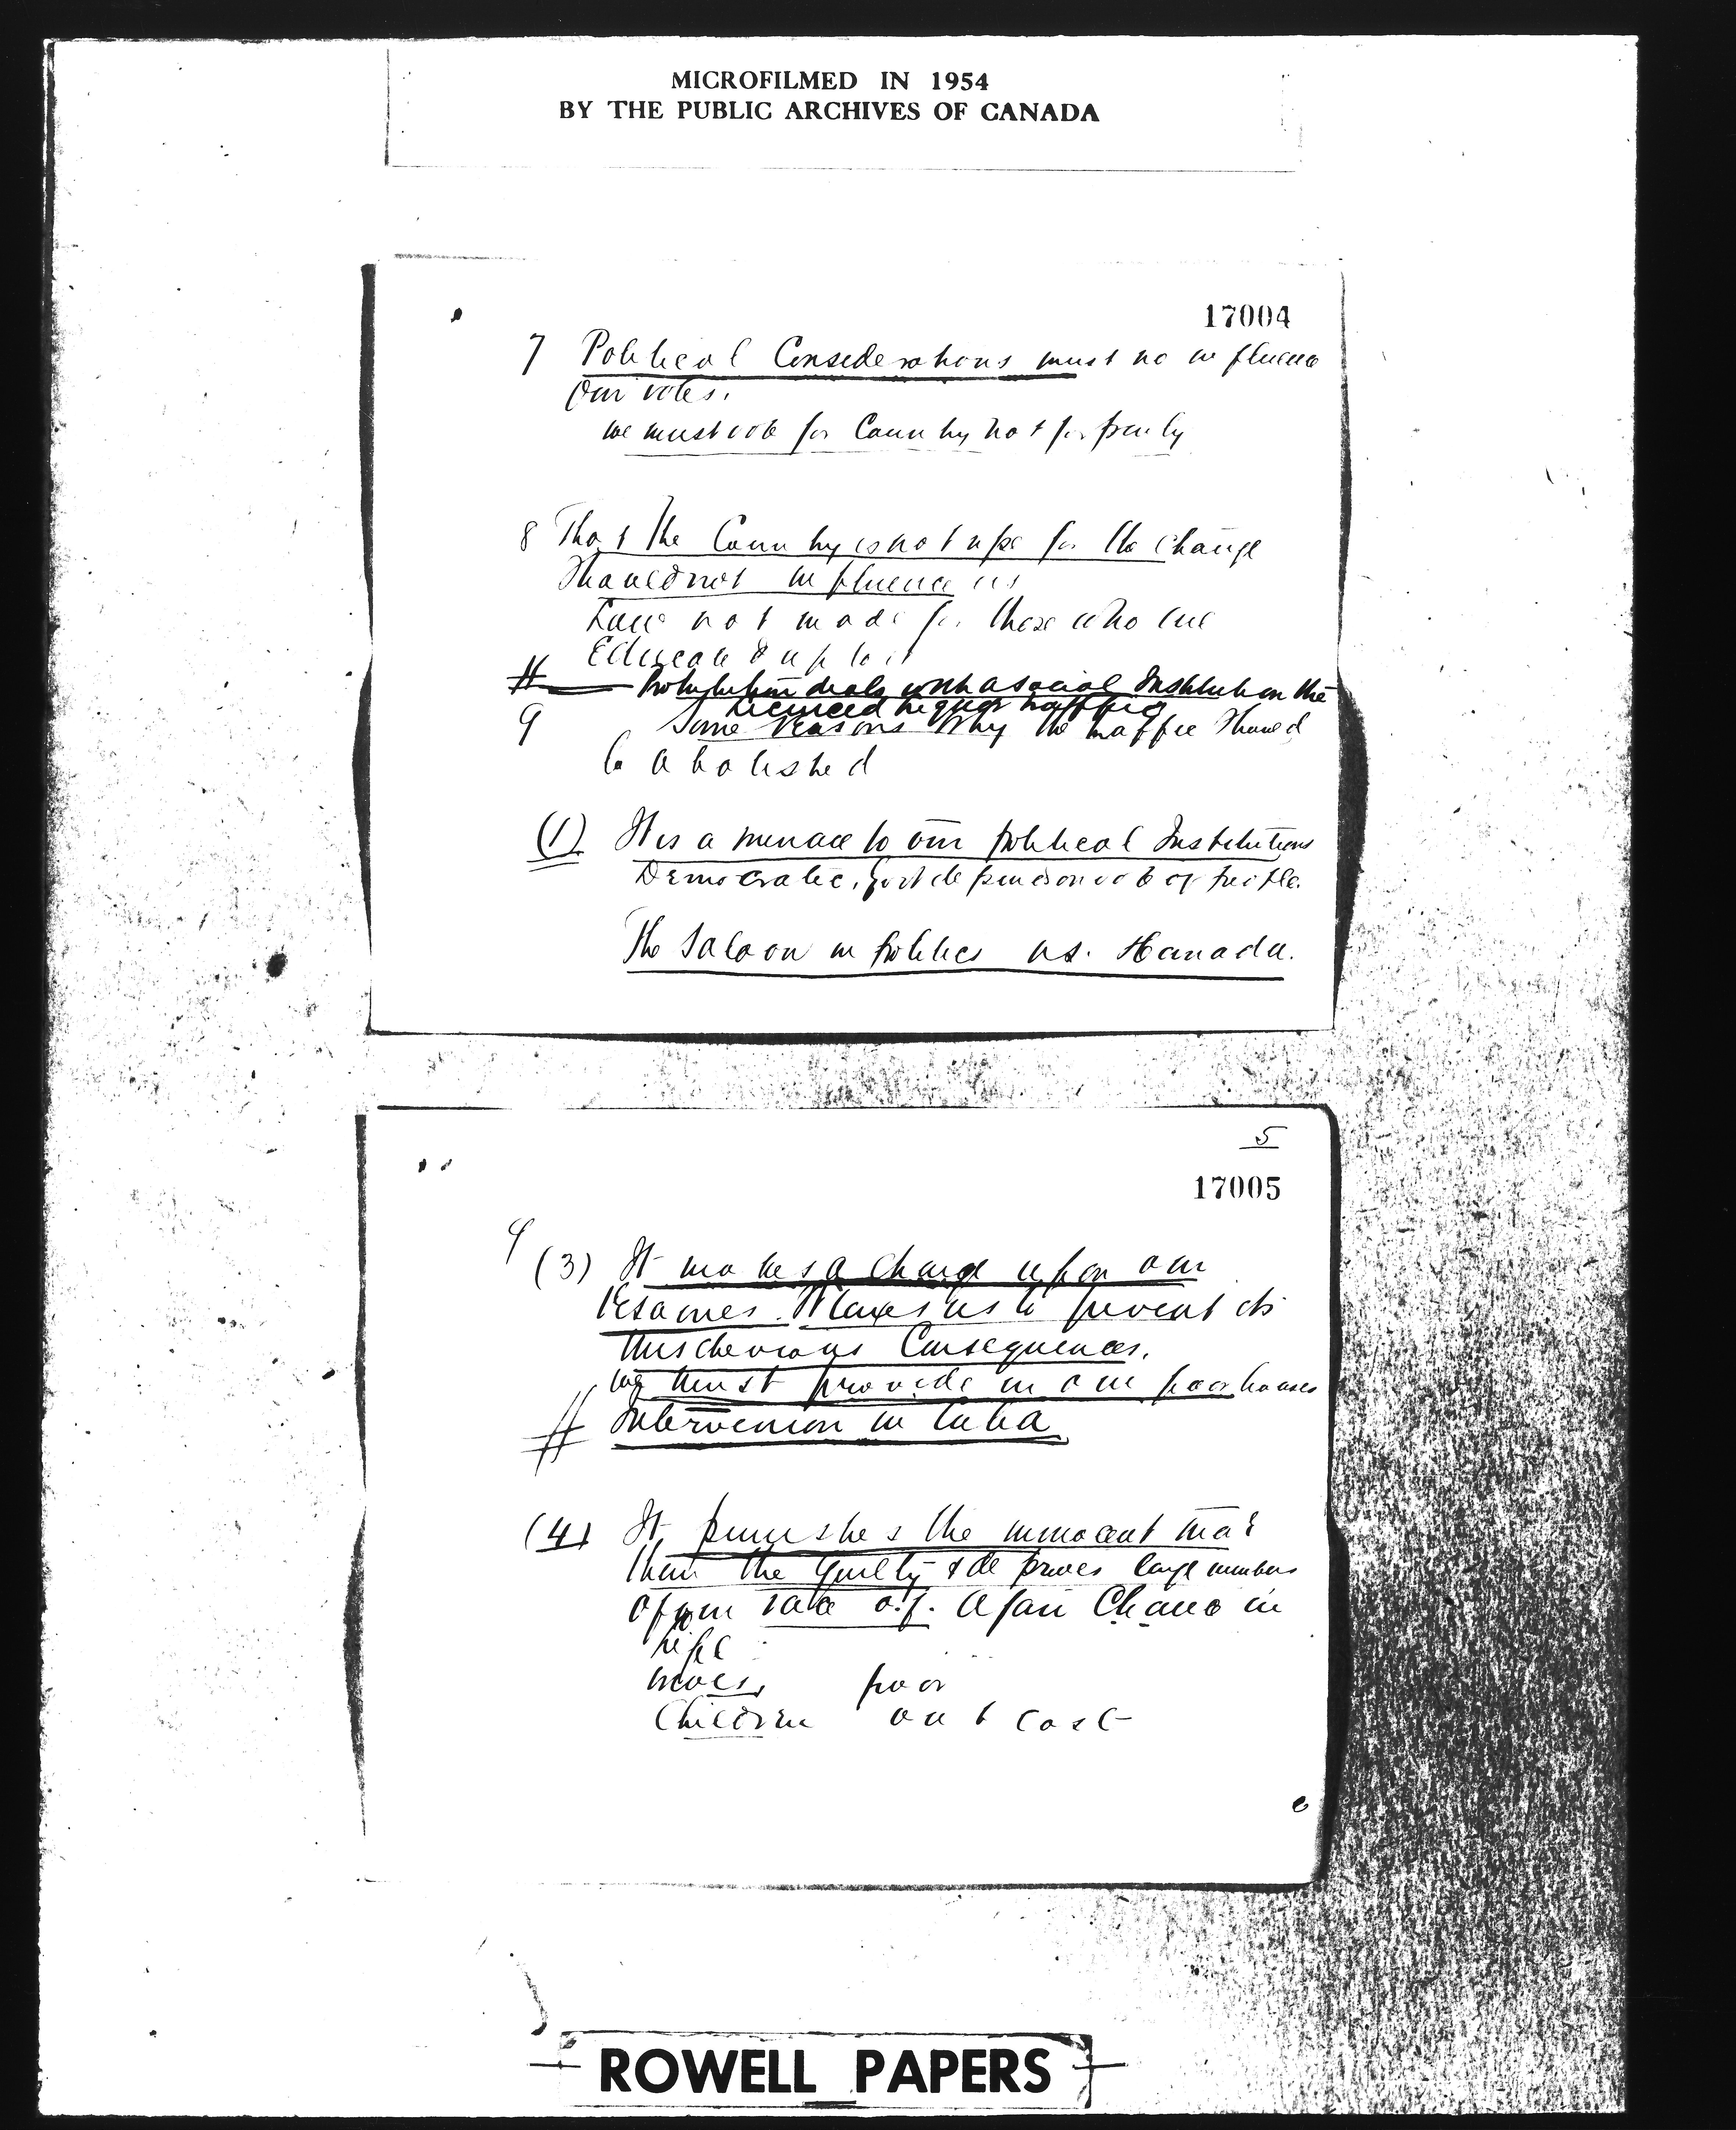 MICROFILMED IN 1954
BY THE PUBLIC ARCHIVES OF CANADA
17004
7 Political Considerations must no influence
Our votes.
we must vote for Country not for party
8 That the Country is not ripe for the Change
Should not influence us
Law not made for those who are
Educated up to it
Prohibition deals with a social Institution the
licenced liquor traffic
9 Some Reasons Why the traffic Should
be Abolished
(1) It is a menace to our political Institutions
Democratic, Govt depends on vote of people.
The Saloon in politics us. Canada.
5
17005
9
(3) It makes a charge upon our
Resources. It taxes us to prevent its
Mischevious Consequences.
We must provide in our poor houses
Intervention in Cuba
(4) It punishes the innocent more
than the guilty & deprives large numbers
of our A fair Chance in
life
Wives, poor
Children out cast
ROWELL PAPERS